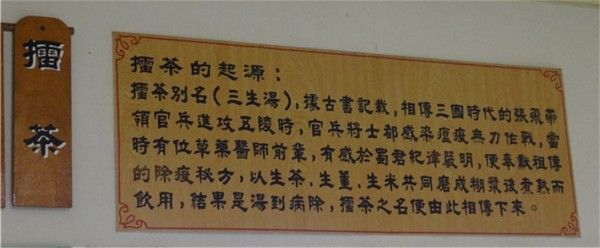 擂茶
擂茶的起源：
擂茶別名(三生湯)，據古書記載，相傳三國時代的張飛帶
領官兵進攻五陵時，官兵將士都感染瘟疫無力作戰，當
時有位草藥醫師前輩，有感於蜀君紀律嚴明，便奉獻祖傳
的除疫秘方，以生茶、生薑、生米共同磨成糊漿後煮熟而
飲用，結果是湯到病除，擂茶之名便由此相傳下來。